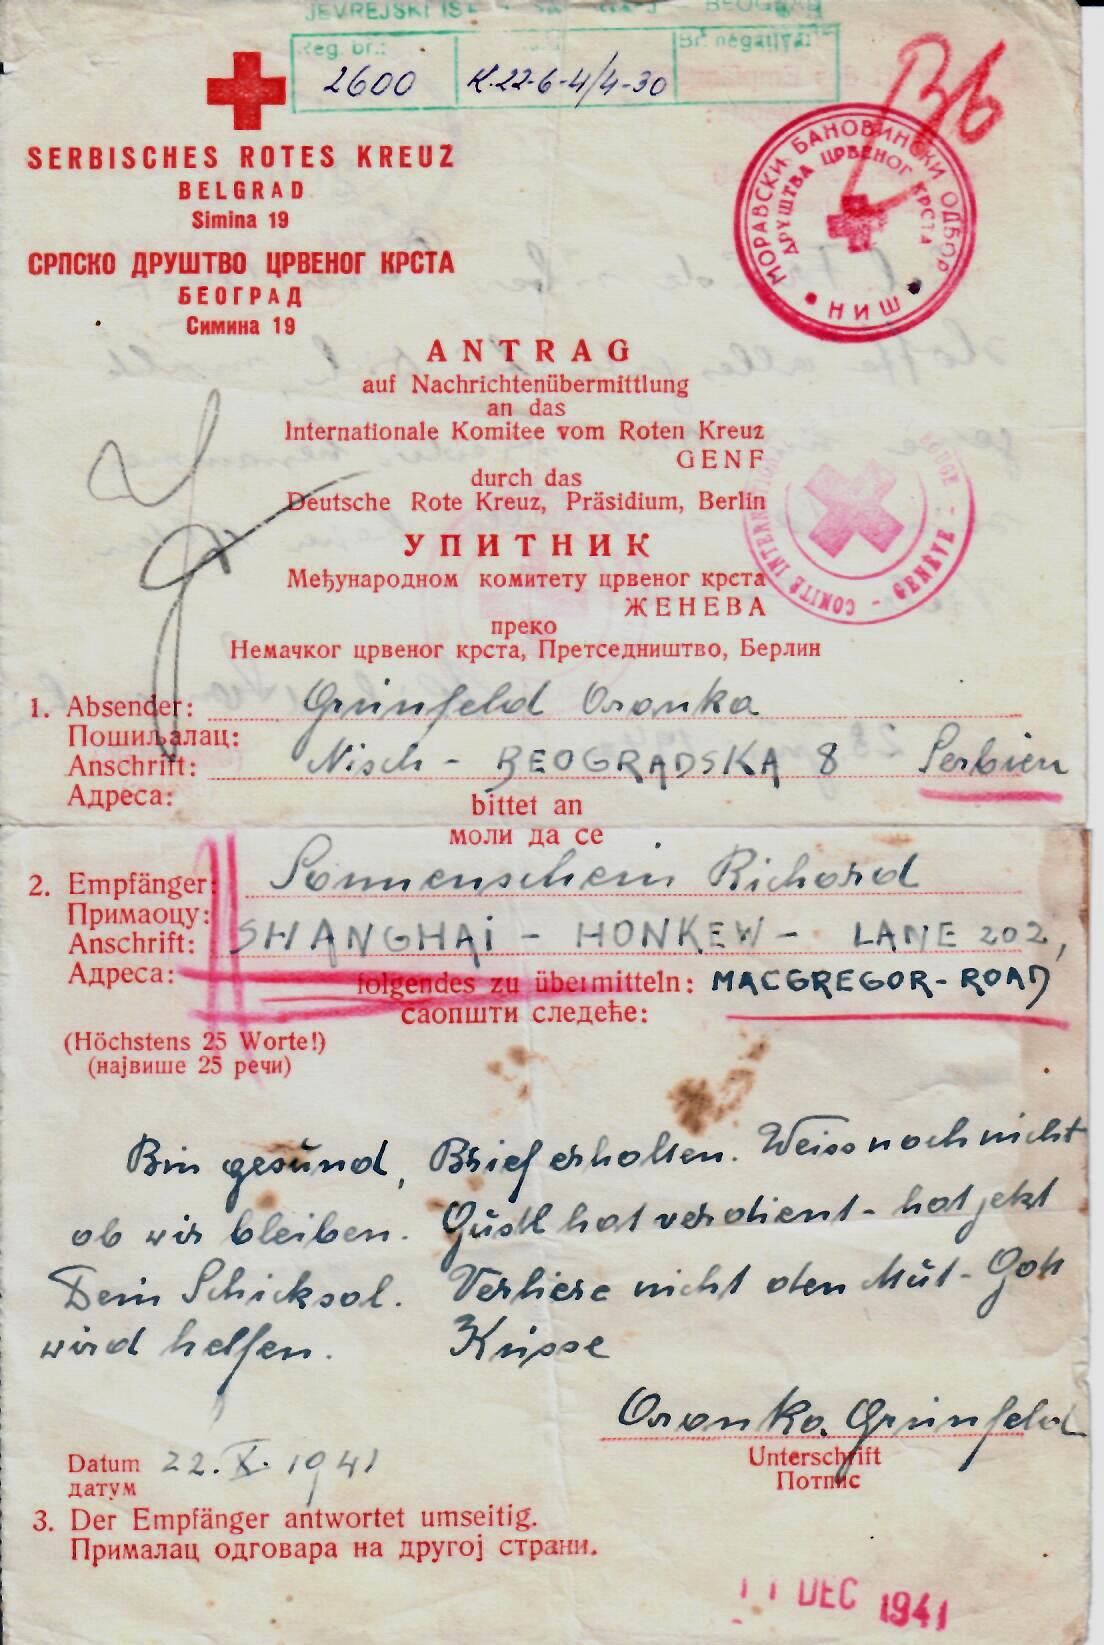 JEVREJSKI
BEOGRAD
Reg. br.:
Br. negativa:
2600
K.22-6-4/4-30
SERBISCHES ROTES KREUZ
BELGRAD
Simina 19
СРПСКО ДРУШТВО ЦРВЕНОГ КРСТА
БЕОГРАД
Симина 19
МОРАВСКИ БАНОВИНСКИ ОДБОР
ДРУШТВА ЦРВЕНОГ КРСТА
НИШ
ANTRAG
auf Nachrichtenübermittlung
an das
Internationale Komitee vom Roten Kreuz
GENF
durch das
Deutsche Rote Kreuz, Präsidium, Berlin
COMITÉ INTERNATIONAL ROUGE - GENÈVE -
УПИТНИК
Међународном комитету црвеног крста
ЖЕНЕВА
преко
Немачког црвеног крста, Претседништво, Берлин
1. Absender: Grünfeld Oranka
Пошиљалац:
Anschrift: Nisch - BEOGRADSKA 8 Serbien
Адреса:
bittet an
моли да се
2. Empfänger: Sonnenschein Richard
Примаоцу:
Anschrift: SHANGHAI - HONKEW - LANE 202,
Адреса:
folgendes zu übermitteln: MACGREGOR-ROAD
саопшти следеће:
(Höchstens 25 Worte!)
(највише 25 речи)
Bin gesund, Brief erhalten. Weiss noch nicht
ob wir bleiben. Gustl hat verdient - hat jetzt
Dein Schicksal. Verliere nicht den Mut - Gott
wird helfen. Küsse
Oranka Grünfeld
Unterschrift
Потпис
Datum 22. X. 1941
датум
3. Der Empfänger antwortet umseitig.
Прималац одговара на другој страни.
11 DEC 1941